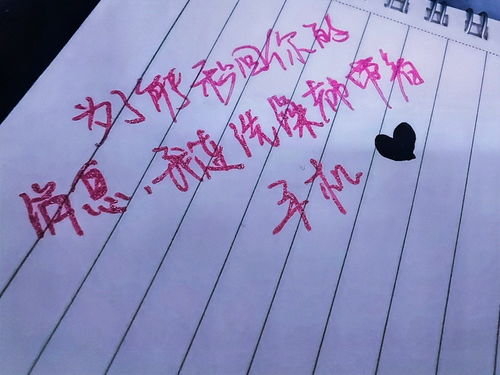 为了能秒回你的
信息,我连洗澡都带着
手机